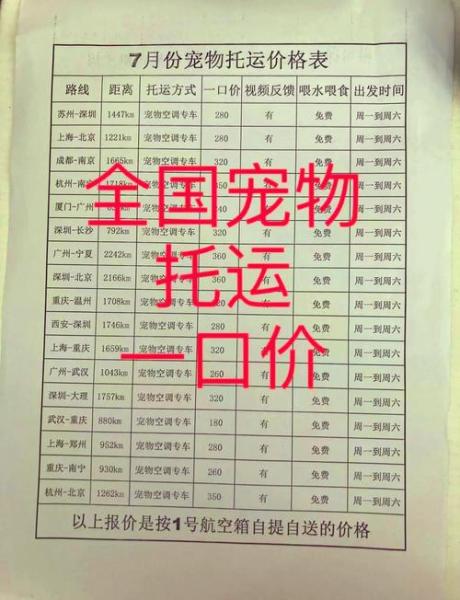 7月份宠物托运价格表
路线 距离 托运方式 一口价 视频反馈 喂水喂食 出发时间
苏州-深圳 1447km 宠物空调专车 280 有 免费 周一到周六
上海-北京 1221km 宠物空调专车 280 有 免费 周一到周六
成都-南京 1665km 宠物空调专车 320 有 免费 周一到周六
杭州-南宁 1718km 宠物空调专车 有 免费 周一到周六
全国宠物
厦门-广州 宠物空调专车 有 免费 周一到周六
深圳-长沙 792km 宠物空调专车 320 有 免费 周一到周六
广州-宁夏 2242km 宠物空调专车 360 有 免费 周一到周六
托运
深圳-北京 2166km 宠物空调专车 有 免费 周一到周六
重庆-温州 1708km 宠物空调专车 320 有 免费 周一到周六
西安-深圳 1746km 宠物空调专车 280 有 免费 周一到周六
一口价
上海-重庆 1659km 宠物空调专车 320 有 免费 周一到周六
广州-武汉 1043km 宠物空调专车 260 有 免费 周一到周六
深圳-大理 1757km 宠物空调专车 320 有 免费 周一到周六
武汉-重庆 880km 宠物空调专车 180 有 免费 周一到周六
上海-郑州 952km 宠物空调专车 280 有 免费 周一到周六
重庆-南宁 930km 宠物空调专车 260 有 免费 周一到周六
杭州-北京 1262km 宠物空调专车 350 有 免费 周一到周六
以上报价是按1号航空箱自提自送的价格